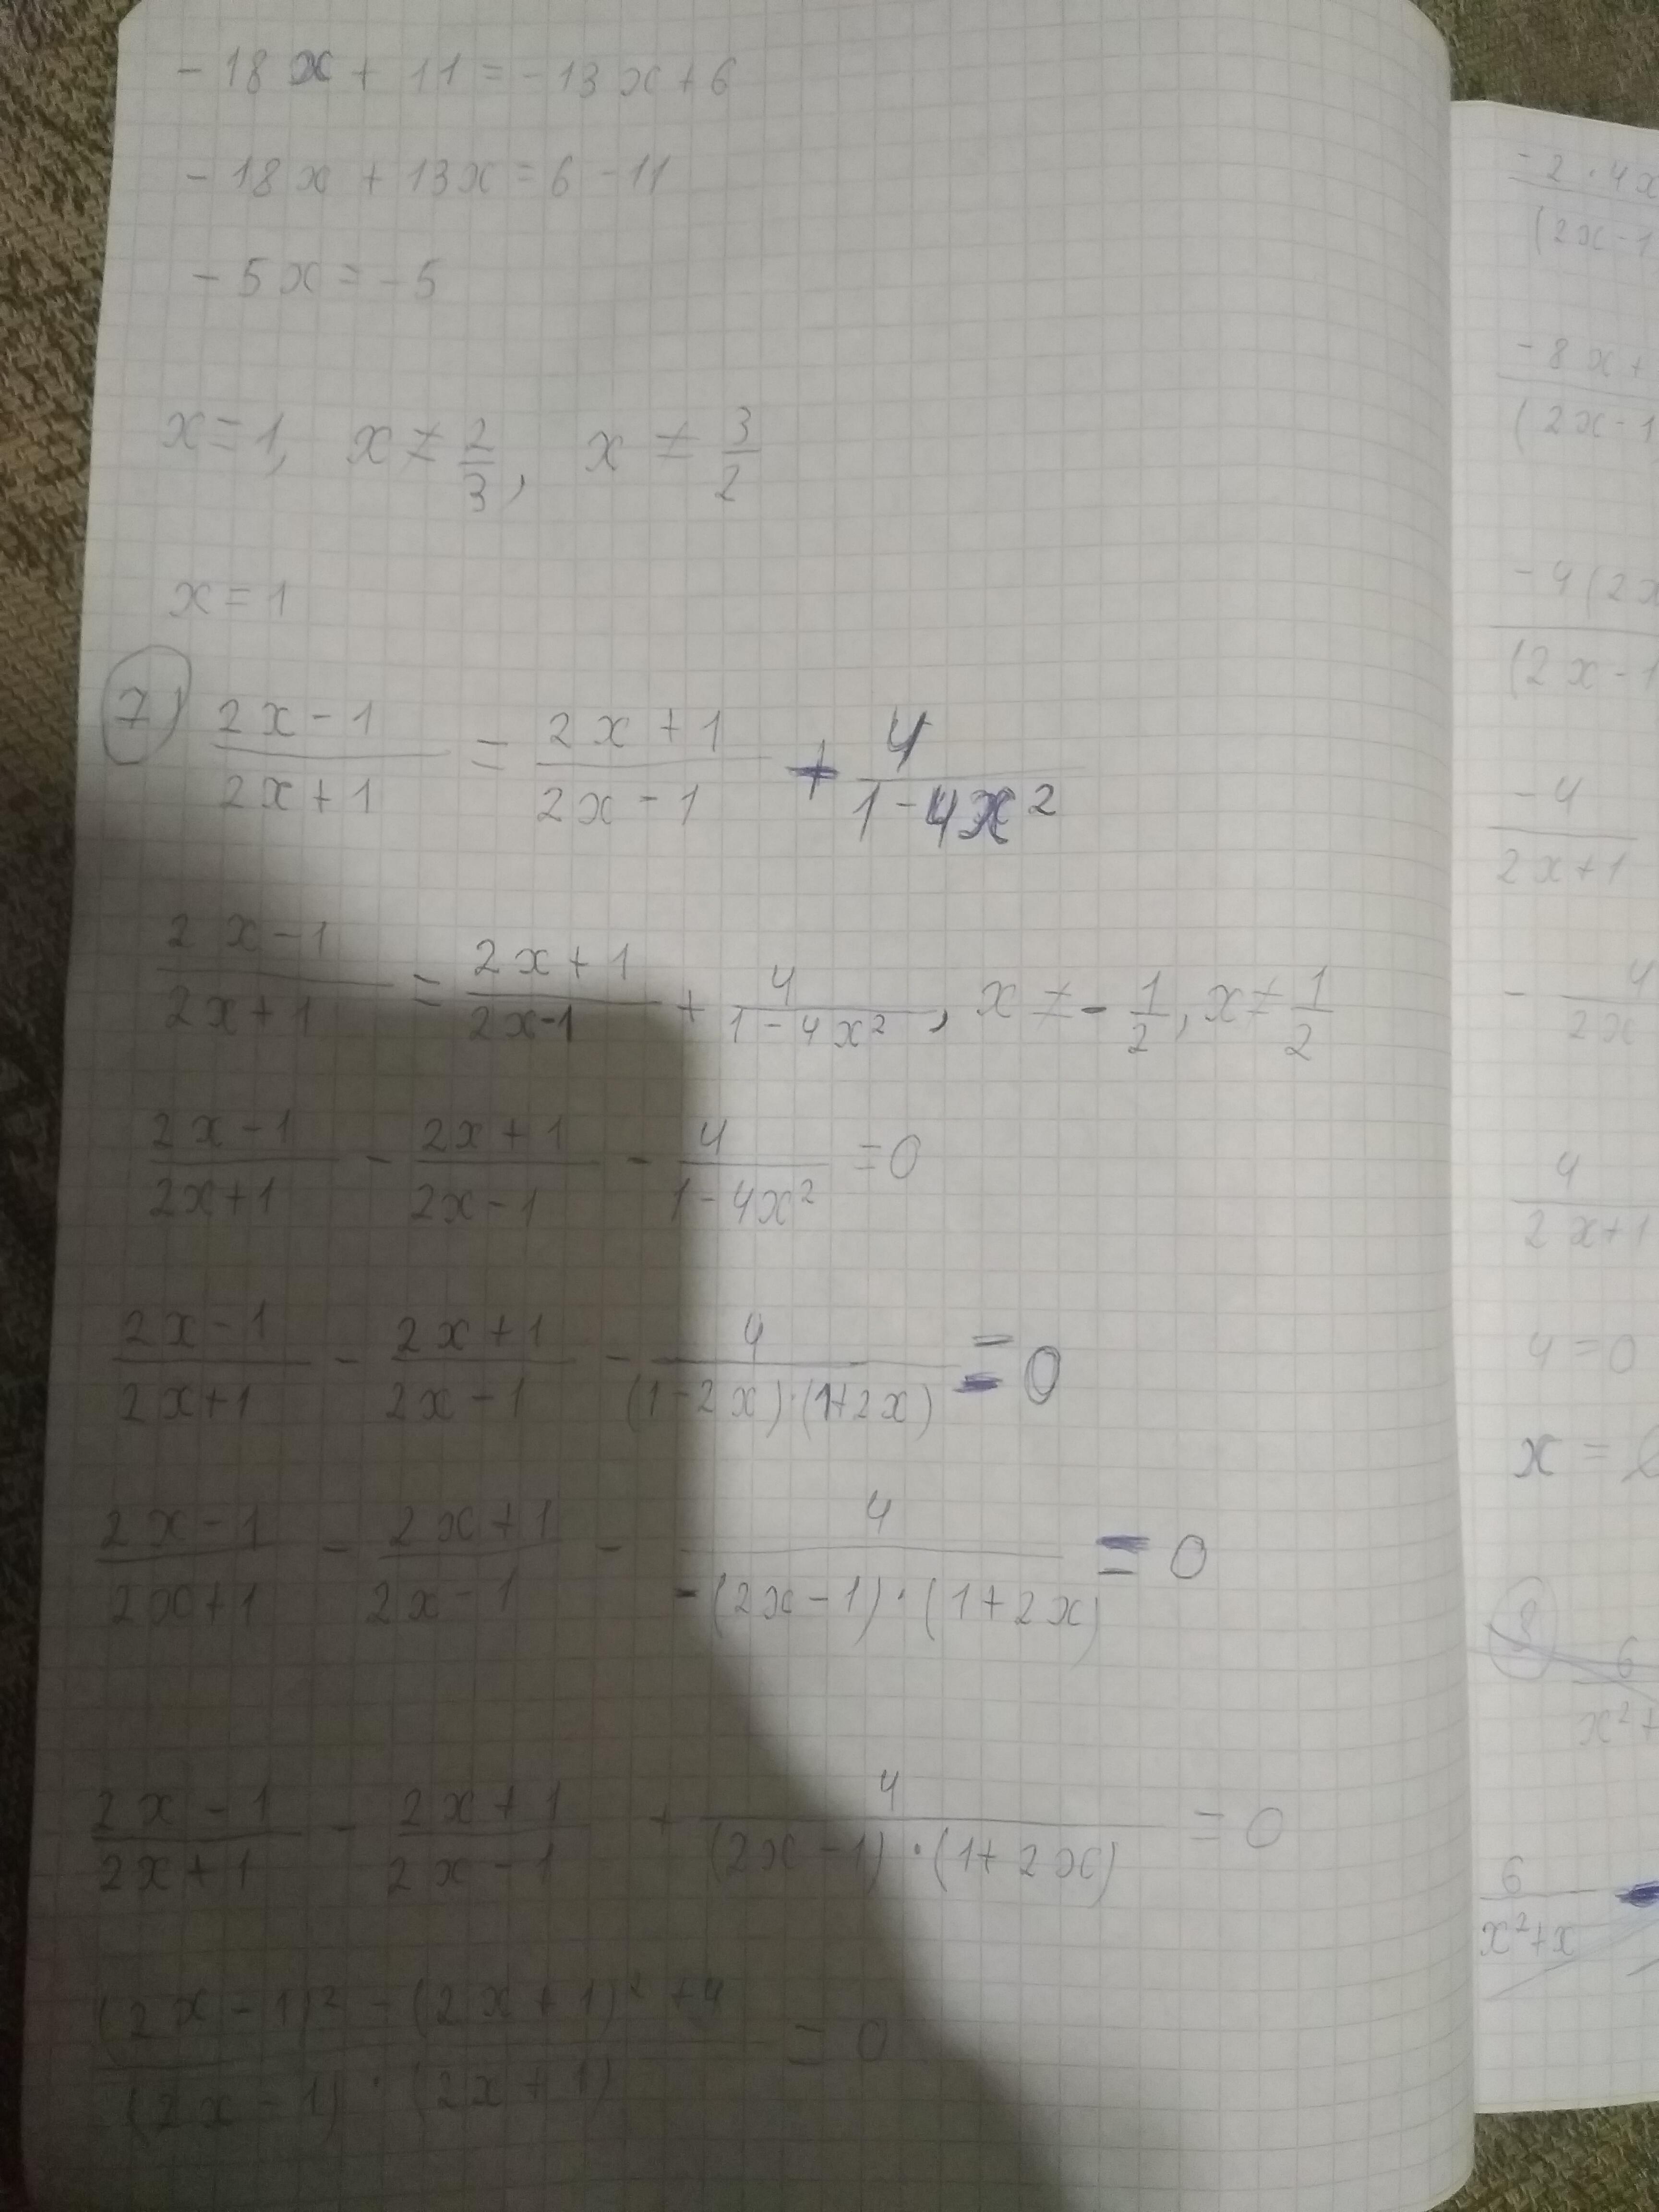 -18x + 11 = -13x + 6
-18x + 13x = 6 - 11
-5x = -5
x = 1, x ≠ 2/3, x ≠ 3/2
x = 1
7) (2x - 1)/(2x + 1) = (2x + 1)/(2x - 1) + 4/(1 - 4x²)
(2x - 1)/(2x + 1) = (2x + 1)/(2x - 1) + 4/(1 - 4x²), x ≠ -1/2, x ≠ 1/2
(2x - 1)/(2x + 1) - (2x + 1)/(2x - 1) - 4/(1 - 4x²) = 0
(2x - 1)/(2x + 1) - (2x + 1)/(2x - 1) - 4/((1 - 2x)·(1 + 2x)) = 0
(2x - 1)/(2x + 1) - (2x + 1)/(2x - 1) - 4/(-(2x - 1)·(1 + 2x)) = 0
(2x - 1)/(2x + 1) - (2x + 1)/(2x - 1) + 4/((2x - 1)·(1 + 2x)) = 0
((2x - 1)² - (2x + 1)² + 4)/((2x - 1)·(2x + 1)) = 0
-2·4x
(2x-1
-8x+
(2x-1
-4(2x
(2x-1
-4
2x+1
- 4
2x
4
2x+1
4 = 0
x =
6
x²+
6
x²+x -